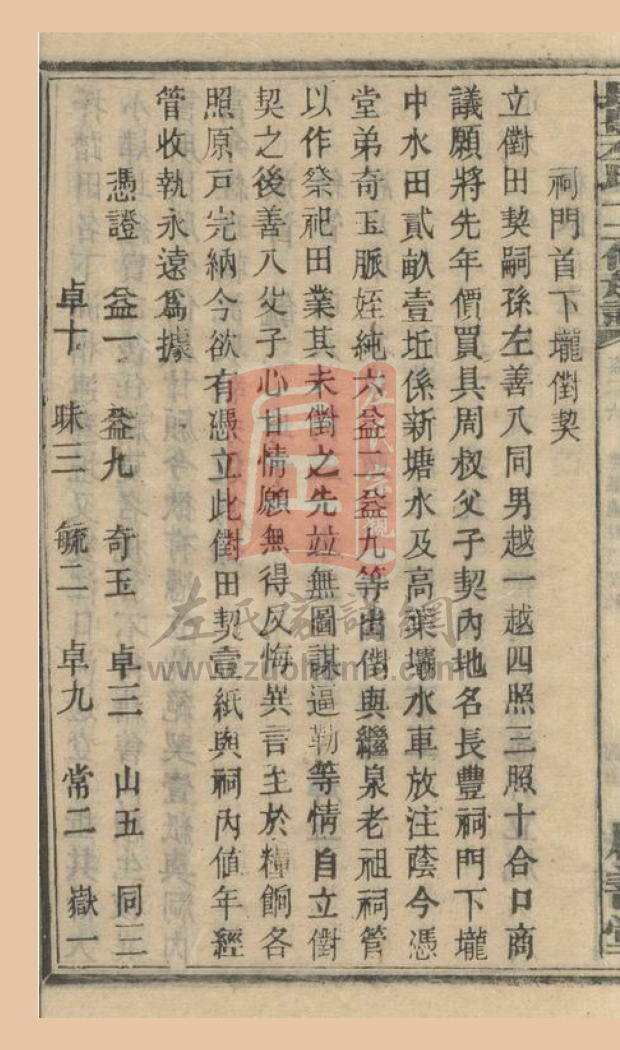 祠門首下壠𠐺契
立𠐺田契嗣孫左善八同男越一越四照三照十合口商
議願將先年價買具周叔父子契內地名長豐祠門下壠
中水田貳畝壹坵係新塘水及高葉壩水車放注蔭今憑
堂弟奇玉脈姪純六益二益九等出𠐺與繼泉老祖祠管
以作祭祀田業其未𠐺之先並無圖謀逼勒等情自立𠐺
契之後善八父子心甘情願無得反悔異言至於糧餉各
照原戸完納今欲有憑立此𠐺田契壹紙與祠內值年經
管收執永遠爲據
憑證 益一 益九 奇玉 卓三 山五 同三
卓十 昧三 毓二 卓九 常二 嶽一
左氏宗親
左氏家譜網
www.zuohome.com